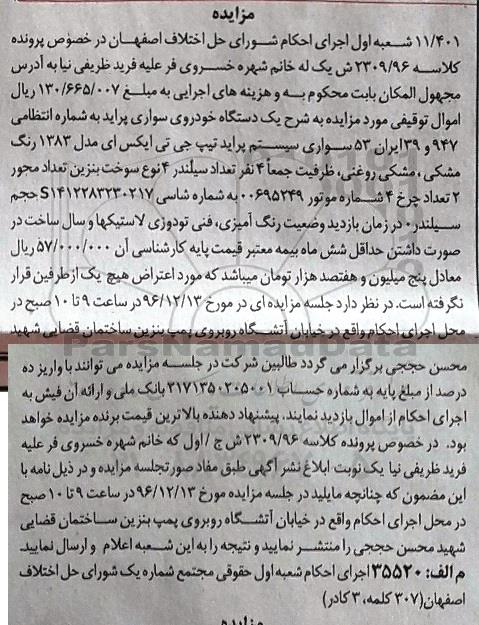 مزایده
۱۱/۴۰۱ شعبه اول اجرای احکام شورای حل اختلاف اصفهان در خصوص پرونده
کلاسه ۲۳۰۹/۹۶ ش یک له خانم شهره خسروی فر علیه فرید ظریفی نیا به آدرس
مجهول المکان بابت محکوم به و هزینه های اجرایی به مبلغ ۱۳۰/۶۶۵/۰۰۷ ریال
اموال توقیفی مورد مزایده به شرح یک دستگاه خودروی سواری پراید به شماره انتظامی
۹۴۷ و ۳۹ ایران ۵۳ سواری سیستم پراید تیپ جی تی ایکس ای مدل ۱۳۸۳ رنگ
مشکی ، مشکی روغنی، ظرفیت جمعاً ۴ نفر تعداد سیلندر ۴ نوع سوخت بنزین تعداد محور
۲ تعداد چرخ ۴ شماره موتور ۰۰۶۹۵۲۴۹ به شماره شاسی S۱۴۱۲۲۸۳۲۳۰۲۱۷ حجم
سیلندر۰ در زمان بازدید وضعیت رنگ آمیزی، فنی تودوزی لاستیکها و سال ساخت در
صورت داشتن حداقل شش ماه بیمه معتبر قیمت پایه کارشناسی آن ۵۷/۰۰۰/۰۰۰ ریال
معادل پنج میلیون و هفتصد هزار تومان میباشد که مورد اعتراض هیچ یک ازطرفین قرار
نگرفته است. در نظر دارد جلسه مزایده ای در مورخ ۹۶/۱۲/۱۳ در ساعت ۹ تا ۱۰ صبح در
محل اجرای احکام واقع در خیابان آتشگاه روبروی پمپ بنزین ساختمان قضایی شهید
ParsNamadData
محسن حججی برگزار می گردد طالبین شرکت در جلسه مزایده می توانند با واریز ده
درصد از مبلغ پایه به شماره حساب ۲۱۷۱۳۵۰۲۰۵۰۰۱ بانک ملی و ارائه آن فیش به
اجرای احکام از اموال بازدید نمایند. پیشنهاد دهنده بالاترین قیمت برنده مزایده خواهد
بود. در خصوص پرونده کلاسه ۲۳۰۹/۹۶ ش ج / اول که خانم شهره خسروی فر علیه
فرید ظریفی نیا یک نوبت ابلاغ نشر آگهی طبق مفاد صورتجلسه مزایده و در ذیل نامه با
این مضمون که چنانچه مایلید در جلسه مزایده مورخ ۹۶/۱۲/۱۳ در ساعت ۹ تا ۱۰ صبح
در محل اجرای احکام واقع در خیابان آتشگاه روبروی پمپ بنزین ساختمان قضایی
شهید محسن حججی را منتشر نمایید و نتیجه را به این شعبه اعلام و ارسال نمایید.
م الف: ۳۵۵۲۰ اجرای احکام شعبه اول حقوقی مجتمع شماره یک شورای حل اختلاف
اصفهان(۳۰۷ کلمه، ۳ کادر)
مزایده